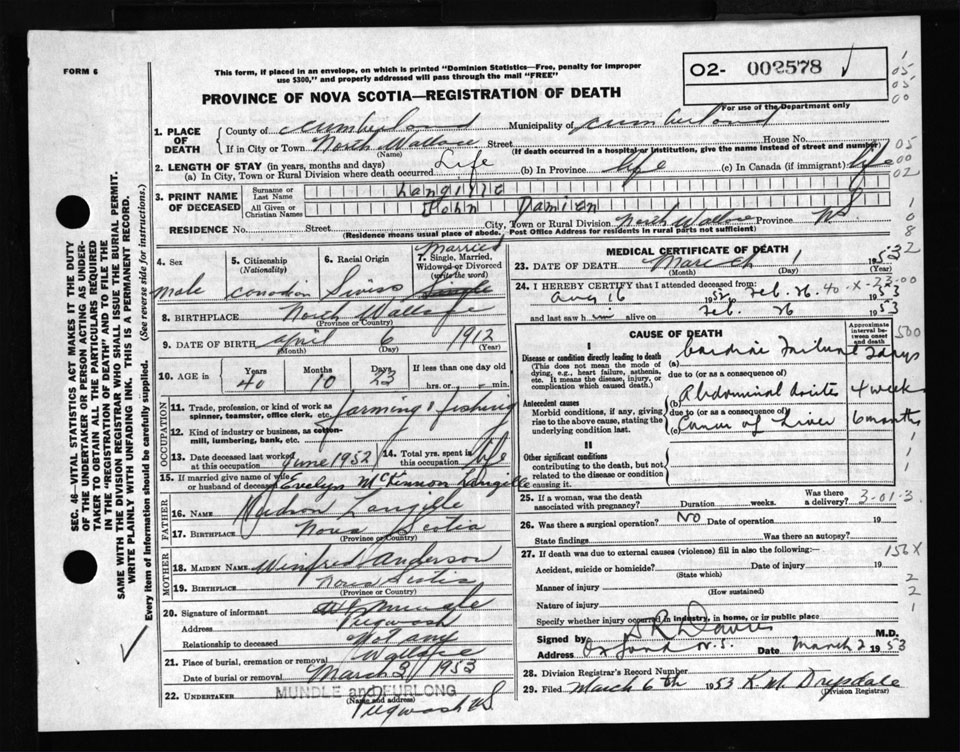 FORM 6
This form, if placed in an envelope, on which is printed "Dominion Statistics—Free, penalty for improper
use $300," and properly addressed will pass through the mail "FREE"
02- 002578
For use of the Department only
PROVINCE OF NOVA SCOTIA—REGISTRATION OF DEATH
1. PLACE OF DEATH
County of Cumberland Municipality of Cumberland
If in City or Town North Wallace Street House No.
(Name) (If death occurred in a hospital or institution, give the name instead of street and number)
2. LENGTH OF STAY (in years, months and days)
(a) In City, Town or Rural Division where death occurred Life (b) In Province life (c) In Canada (if immigrant) life
3. PRINT NAME OF DECEASED
Surname or Last Name Langille
All Given or Christian Names John Damien
RESIDENCE No. Street City, Town or Rural Division North Wallace Province NS
(Residence means usual place of abode. Post Office Address for residents in rural parts not sufficient)
4. Sex
male
5. Citizenship
(Nationality)
Canadian
6. Racial Origin
Swiss
7. Single, Married,
Widowed or Divorced
(write the word)
Married
Single
8. BIRTHPLACE North Wallace
(Province or Country)
9. DATE OF BIRTH April 6 1912
(Month) (Day) (Year)
10. AGE in Years Months Days If less than one day old
40 10 23 hrs. or min.
OCCUPATION
11. Trade, profession, or kind of work as
spinner, teamster, office clerk, etc. farming & fishing
12. Kind of industry or business, as cotton-
mill, lumbering, bank, etc.
13. Date deceased last worked
at this occupation June 1952
14. Total yrs. spent in
this occupation life
15. If married give name of wife
or husband of deceased Evelyn McKinnon Langille
FATHER
16. NAME Langille
17. BIRTHPLACE Nova Scotia
(Province or Country)
MOTHER
18. MAIDEN NAME Winifred Anderson
19. BIRTHPLACE Nova Scotia
(Province or Country)
20. Signature of informant Mundle
Address Pugwash
Relationship to deceased Not any
21. Place of burial, cremation or removal Wallace
Date of burial or removal March 3 1953
22. UNDERTAKER MUNDLE and FURLONG
(Name and address)
Pugwash NS
MEDICAL CERTIFICATE OF DEATH
23. DATE OF DEATH March 1 1953
(Month) (Day) (Year)
24. I HEREBY CERTIFY that I attended deceased from:
Aug 16 1952 Feb. 26 1953
and last saw him alive on Feb. 26 1953
CAUSE OF DEATH
Approximate
interval between onset
and death
I
Disease or condition directly leading to death
(This does not mean the mode of
dying, e.g., heart failure, asthenia,
etc. It means the disease, injury, or
complication which caused death.)
(a) Cardiac Failure 2 days
due to (or as a consequence of)
Antecedent causes
Morbid conditions, if any, giving
rise to the above cause, stating the
underlying condition last.
(b) Abdominal ascites 4 weeks
due to (or as a consequence of)
(c) Cancer of Liver 6 months
II
Other significant conditions
contributing to the death, but not
related to the disease or condition
causing it.
25. If a woman, was the death
associated with pregnancy? Duration weeks. Was there a delivery?
3-01-3
26. Was there a surgical operation? No Date of operation 19
State findings Was there an autopsy?
27. If death was due to external causes (violence) fill in also the following:—
156X
Accident, suicide or homicide? Date of injury 19
(State which)
Manner of injury
(How sustained)
Nature of injury
Specify whether injury occurred in industry, in home, or in public place
Signed by Davis M.D.
Address Oxford N.S. Date March 2 1953
28. Division Registrar's Record Number
29. Filed March 6th 1953 K.M. Drysdale
(Division Registrar)
SEC. 46—VITAL STATISTICS ACT MAKES IT THE DUTY
OF THE UNDERTAKER OR PERSON ACTING AS UNDER-
TAKER TO OBTAIN ALL THE PARTICULARS REQUIRED
IN THE "REGISTRATION OF DEATH" AND TO FILE THE
SAME WITH THE DIVISION REGISTRAR WHO SHALL ISSUE THE BURIAL PERMIT.
WRITE PLAINLY WITH UNFADING INK. THIS IS A PERMANENT RECORD.
Every item of Information should be carefully supplied. (See reverse side for instructions.)